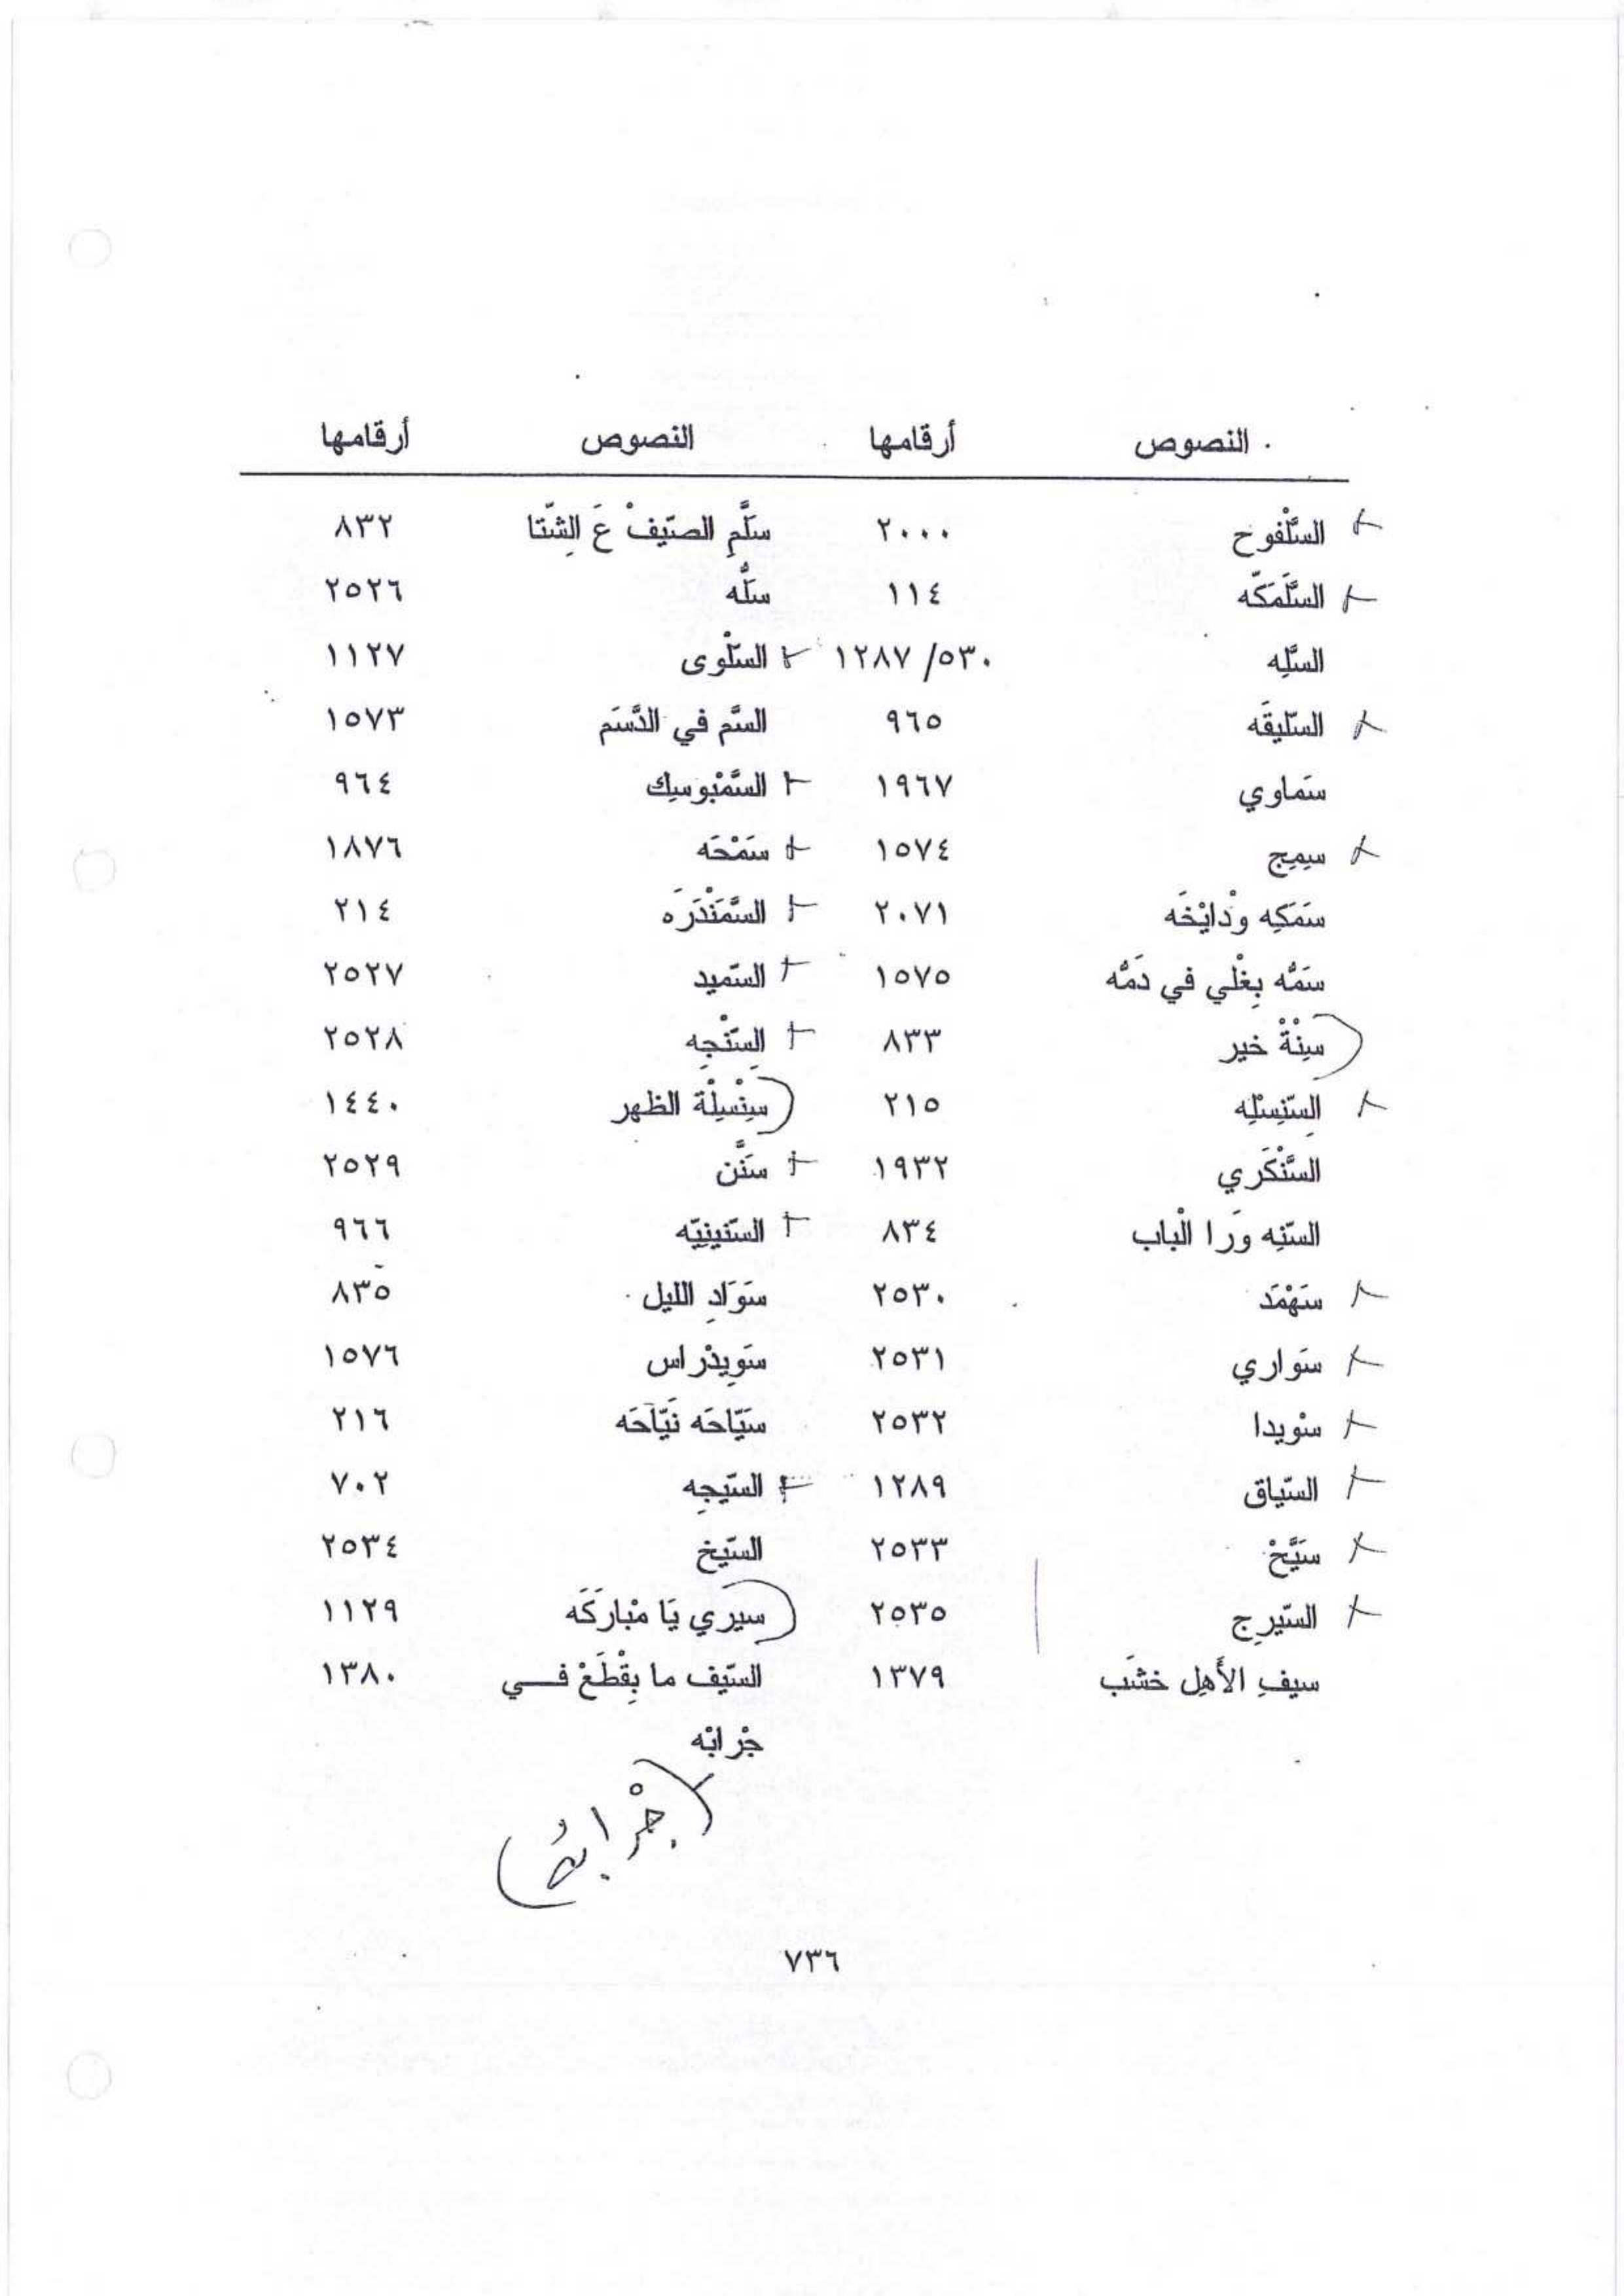 النصوص أرقامها النصوص أرقامها
السَّلْفوح ٢٠٠٠ سَلَّمِ الصّيفْ عَ الشّتا ٨٣٢
السَّلَمَكّه ١١٤ سَلُّه ٢٥٢٦
السَّلِه ٥٣٠/ ١٢٨٧ السّلْوى ١١٢٧
السّليقَه ٩٦٥ السَّم في الدَّسَم ١٥٧٣
سَماوي ١٩٦٧ السَّمْبوسِك ٩٦٤
سِمِج ١٥٧٤ سَمْحَه ١٨٧٦
سَمَكِه وْدايْخَه ٢٠٧١ السَّمَنْدَرَه ٢١٤
سَمُّه بِغْلي في دَمُّه ١٥٧٥ السّميد ٢٥٢٧
سِنْةْ خير ٨٣٣ السِّنْجِه ٢٥٢٨
السِّنِسْلِه ٢١٥ سِنْسِلْة الظهر ١٤٤٠
السَّنْكَري ١٩٣٢ سَنَّن ٢٥٢٩
السّنِه وَرا الْباب ٨٣٤ السّنينِيّه ٩٦٦
سَهْمَد ٢٥٣٠ سَوَادِ الليل ٨٣٥
سَواري ٢٥٣١ سَويدْراس ١٥٧٦
سْويدا ٢٥٣٢ سَيّاحَه نَيّاحَه ٢١٦
السّياق ١٢٨٩ السّيجِه ٧٠٢
سَيَّحْ ٢٥٣٣ السّيخ ٢٥٣٤
السّيرِج ٢٥٣٥ سيري يَا مْبارَكَه ١١٢٩
سيفِ الأَهِل خشَب ١٣٧٩ السّيف ما بِقْطَعْ فــي ١٣٨٠
جْرابْه
جْرابُه
٧٣٦